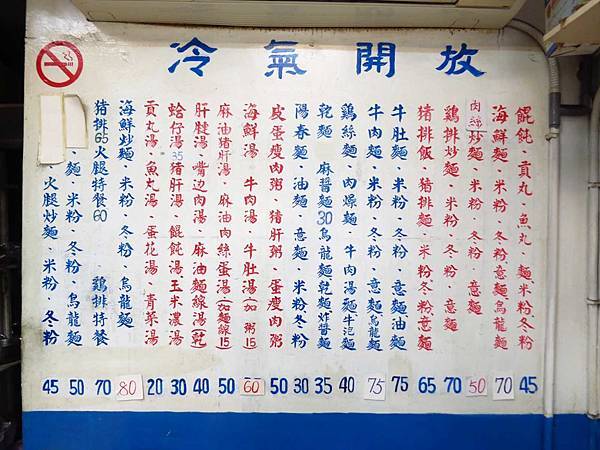 冷氣開放
餛飩、貢丸、魚丸、麵、米粉、冬粉 45
海鮮麵、米粉、冬粉、意麵、烏龍麵 70
肉絲炒麵、米粉、冬粉、意麵 50
雞排炒麵、米粉、冬粉、意麵 70
豬排飯、豬排麵、米粉、冬粉、意麵 65
牛肚麵、米粉、冬粉、意麵、油麵 75
牛肉麵、米粉、冬粉、意麵、烏龍麵 75
雞絲麵、肉燥麵 牛肉湯麵、牛泡麵 40
乾麵 麻醬麵30烏龍麵乾麵炸醬麵 35
陽春麵、油麵、意麵、米粉、冬粉 30
皮蛋瘦肉粥、豬肝粥、蛋瘦肉粥 50
海鮮湯、牛肉湯、牛肚湯(加粥15 60
麻油豬肝湯、麻油肉絲蛋湯(加麵線15 50
肝腱湯、嘴边肉湯、麻油麵線湯(乾 40
蛤仔湯35豬肝湯、餛飩湯玉米濃湯 30
貢丸湯、魚丸湯、蛋花湯 青菜湯 20
海鮮炒麵、米粉、冬粉、烏龍麵 80
豬排65火腿特餐60 雞排特餐 70
麵、米粉、冬粉、烏龍麵 50
火腿炒麵、米粉、冬粉 45